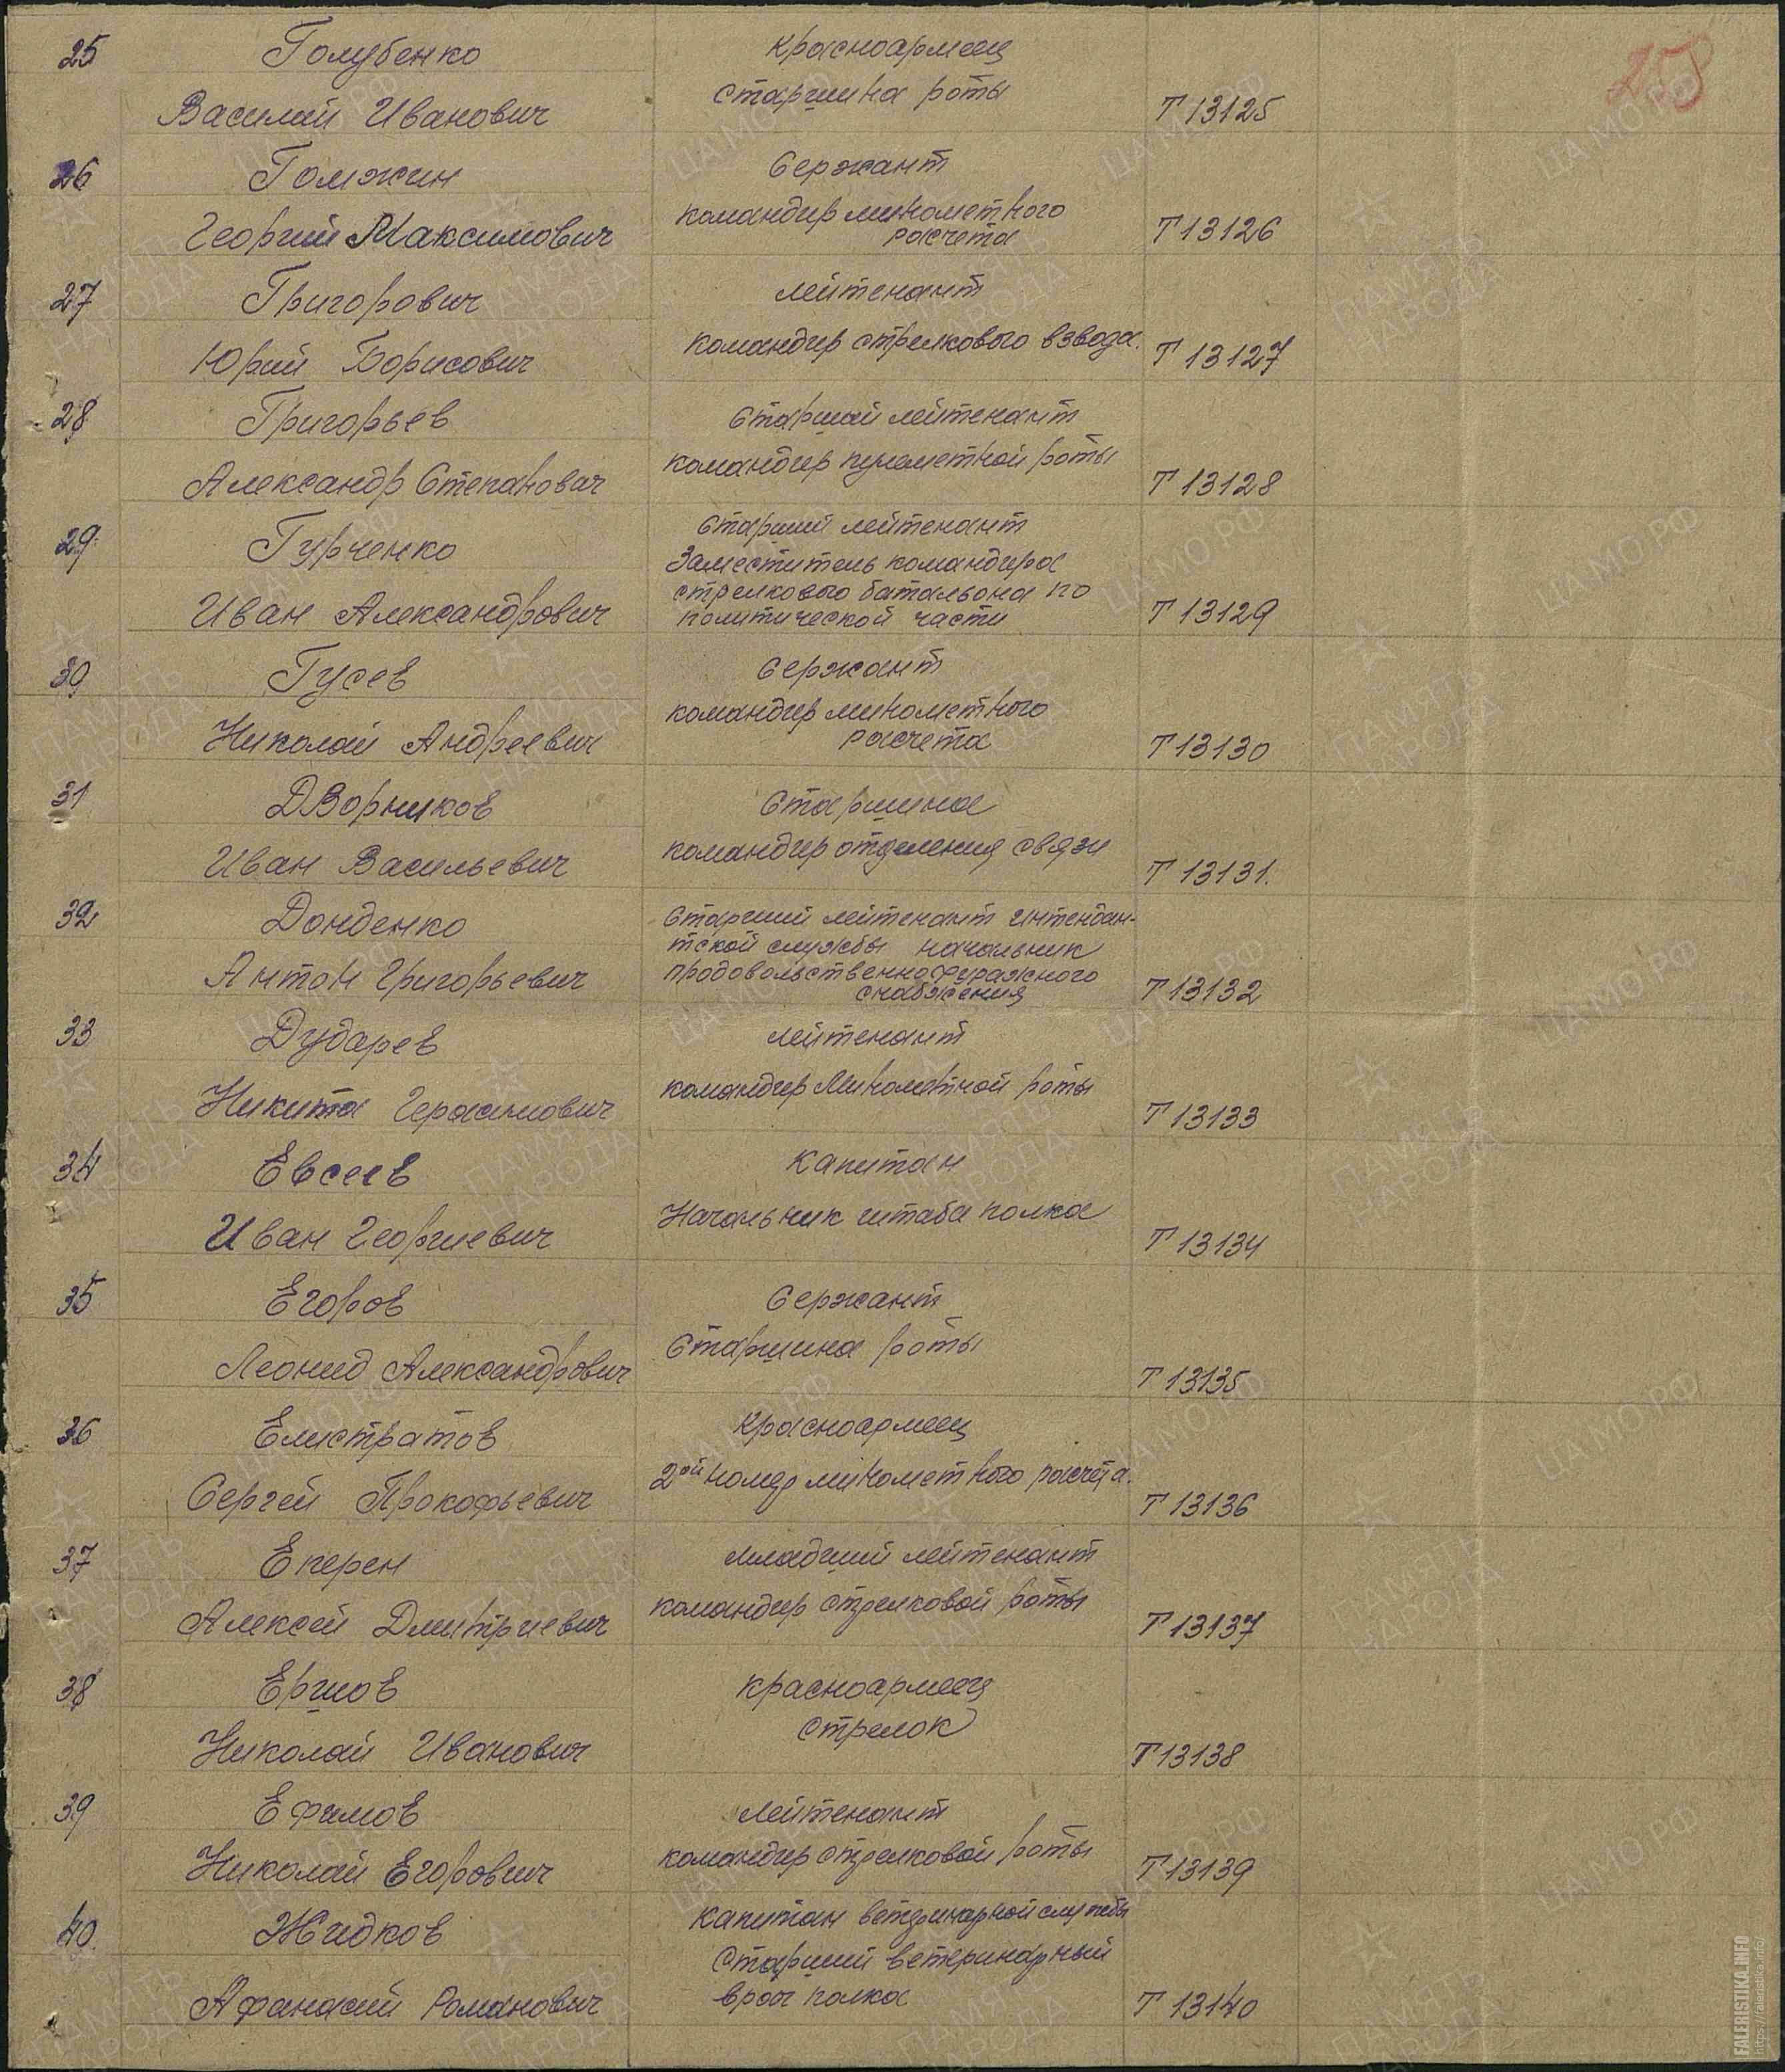 258
25 Голубенко Красноармеец
Старшина роты
Василий Иванович Т 13125
26 Гомжин Сержант
командир минометного
расчета
Георгий Максимович Т 13126
27 Григорович Лейтенант
командир стрелкового взвода.
Юрий Борисович Т 13127
28 Григорьев Старший лейтенант
командир пулеметной роты
Александр Степанович Т 13128
29 Гурченко Старший лейтенант
Заместитель командира
стрелкового батальона по
Иван Александрович политической части Т 13129
30 Гусев Сержант
командир минометного
Николай Андреевич расчета Т 13130
31 Дворников Старшина
командир отделения связи
Иван Васильевич Т 13131.
32 Донденко Старший лейтенант интендан-
тской службы начальник
Антон Григорьевич продовольственнофуражного
снабжения Т 13132
33 Дударев Лейтенант
командир Минометной роты
Никита Герасимович Т 13133
34 Евсеев Капитан
Начальник штаба полка
Иван Георгиевич Т 13134
35 Егоров Сержант
Старшина роты
Леонид Александрович Т 13135
36 Елистратов Красноармеец
2ой номер минометного расчета.
Сергей Прокофьевич Т 13136
37 Еперен Младший лейтенант
командир стрелковой роты
Алексей Дмитриевич Т 13137
38 Ершов Красноармеец
Стрелок
Николай Иванович Т 13138
39 Ефимов Лейтенант
командир стрелковой роты
Николай Егорович Т 13139
40. Жидков Капитан ветеринарной службы
Старший ветеринарный
Афанасий Романович врач полка Т 13140
ПАМЯТЬ НАРОДА
ЦАМО.РФ
FALERISTIKA.INFO
https://faleristika.info/